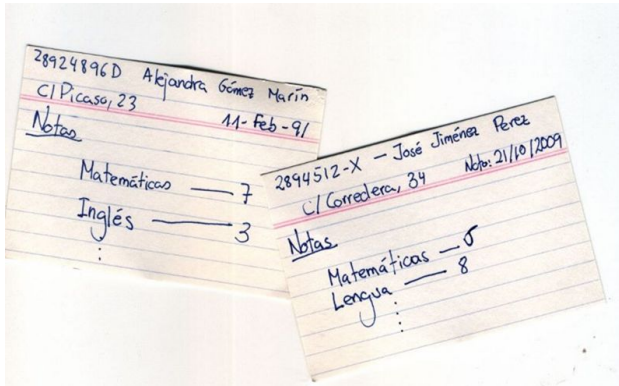 28924896D Alejandra Gómez Marín
C/Picaso, 23
11-Feb-91
Notas
Matemáticas — 7
Inglés — 3
⋮
2894512-X — José Jiménez Perez
C/Corredera, 34 Ncto: 21/10/2009
Notas
Matemáticas — 5
Lengua — 8
⋮